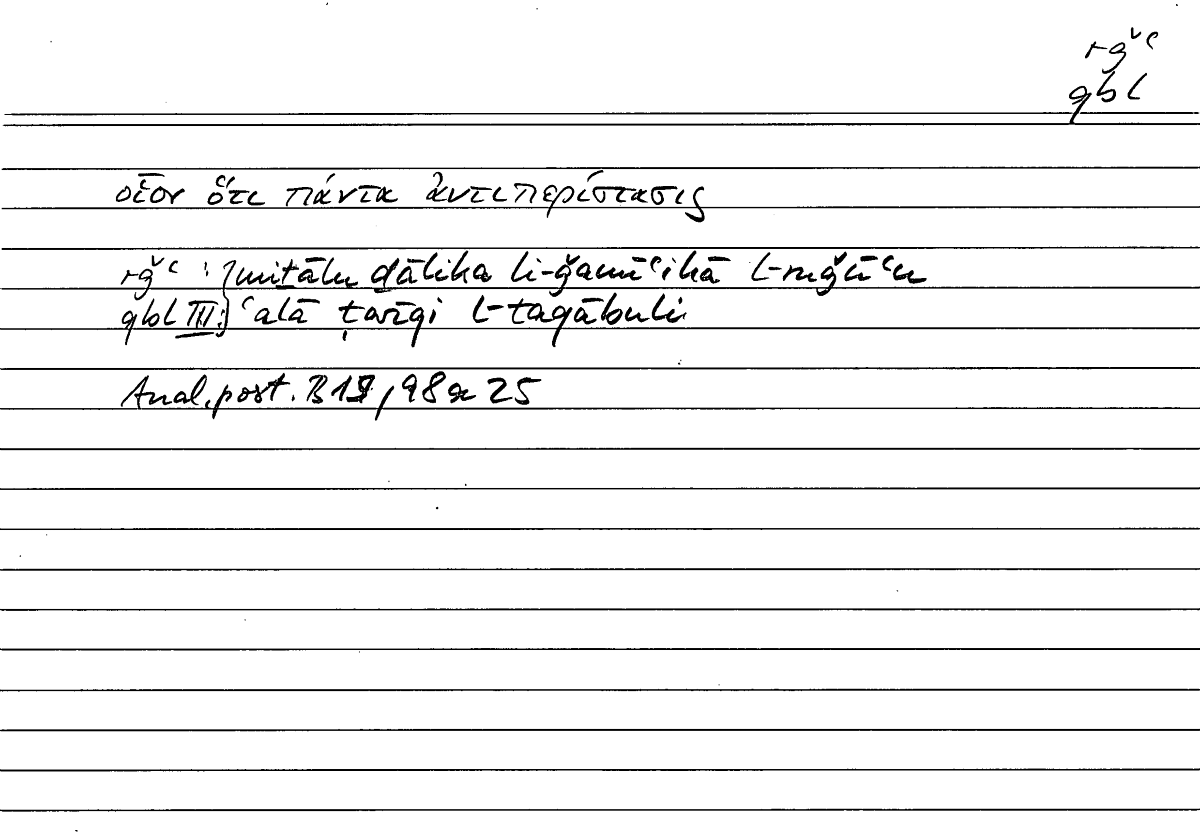 rǧʿ
qbl
οἷον ὅτι πάντα ἀντιπερίστασις
rǧʿ : } miṯālu ḏālika li-ǧamīʿihā l-ruǧūʿu
qbl III: } ʿalā ṭarīqi l-taqābuli
Anal. post. B 15, 98 a 25